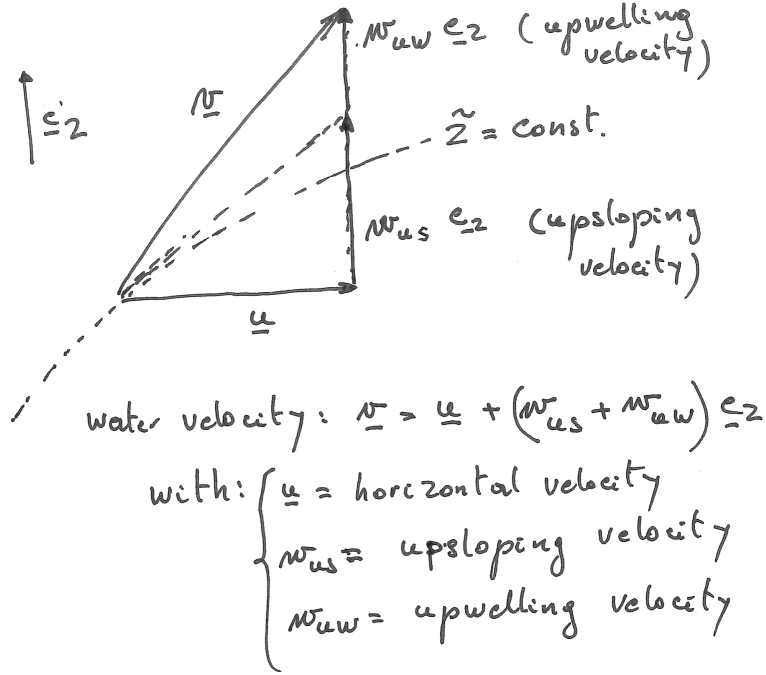 w_uw e_z (upwelling
velocity)
v
e_z
z̃ = const.
w_us e_z (upsloping
velocity)
u
water velocity: v = u + (w_us + w_uw) e_z
with: { u = horizontal velocity
w_us = upsloping velocity
w_uw = upwelling velocity